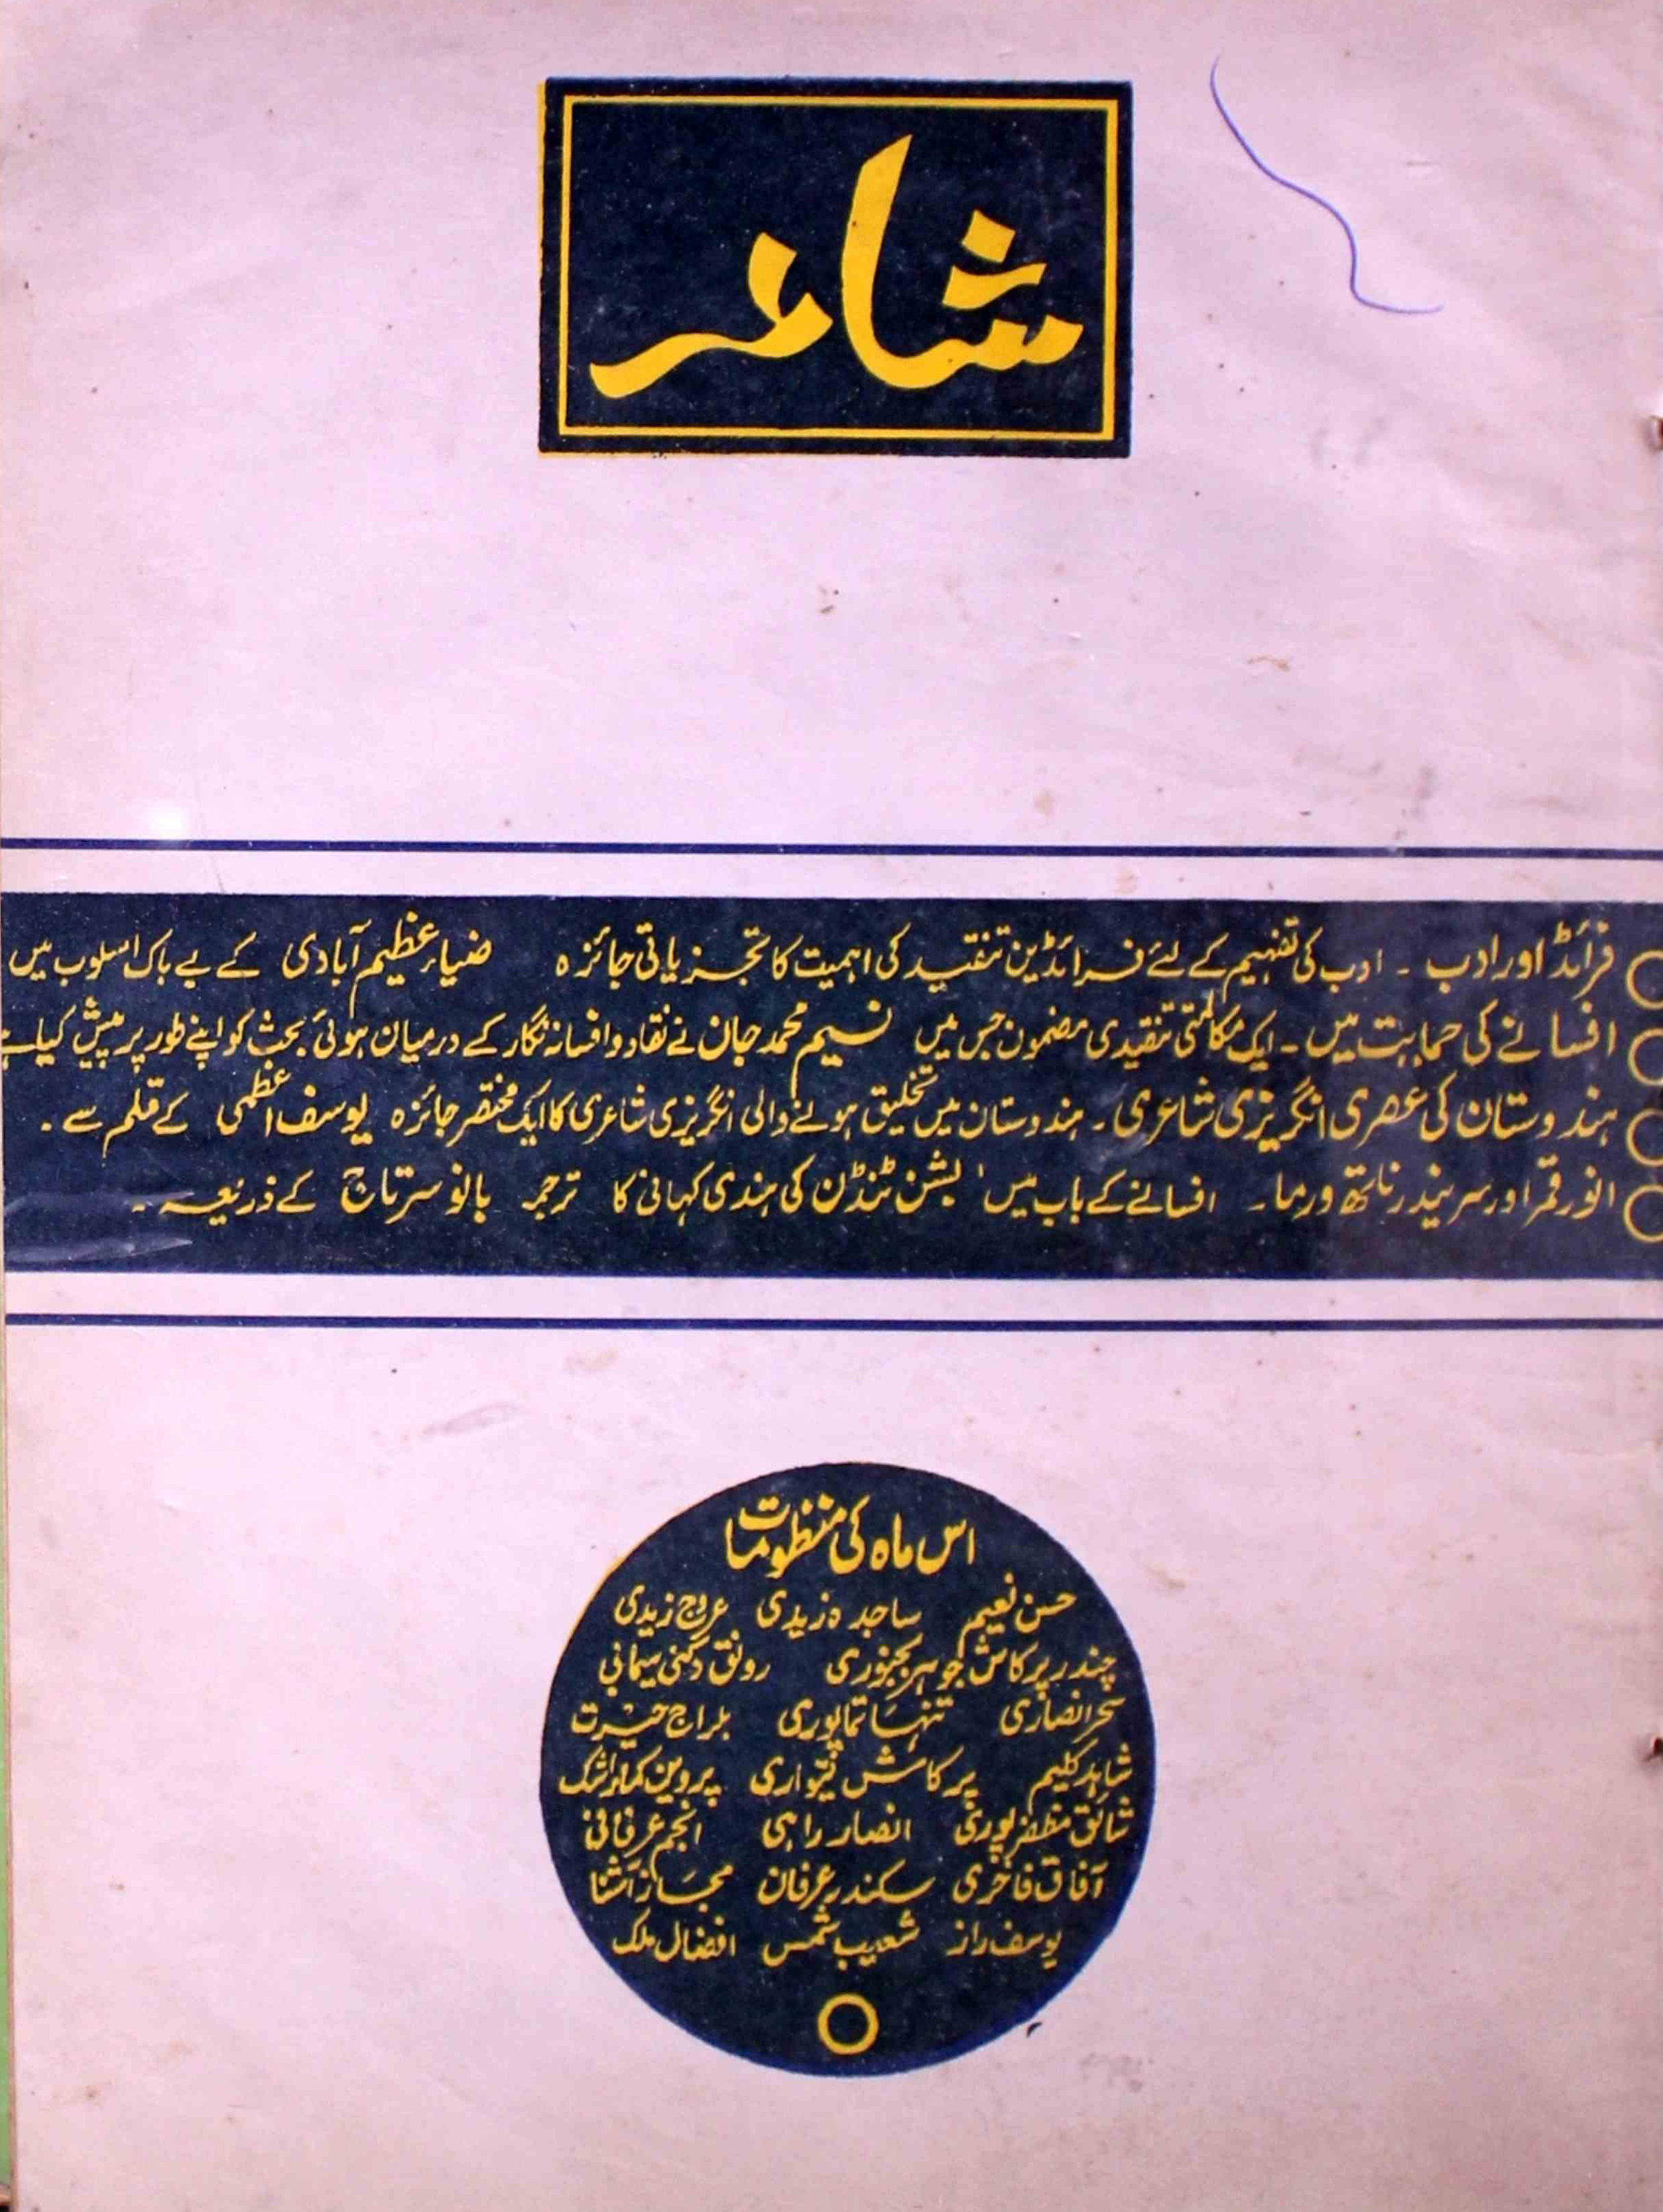 شاعر
فرائڈ اور ادب ۔ ادب کی تفہیم کے لئے فرائڈین تنقید کی اہمیت کا تجزیاتی جائزہ ضیاء عظیم آبادی کے بے باک اسلوب میں
افسانے کی حمایت میں ۔ ایک مکالمتی تنقیدی مضمون جس میں نسیم محمد جان نے نقاد و افسانہ نگار کے درمیان ہوئی بحث کو اپنے طور پر پیش کیا ہے
ہندوستان کی عصری انگریزی شاعری ۔ ہندوستان میں تخلیق ہونے والی انگریزی شاعری کا ایک مختصر جائزہ یوسف اعظمی کے قلم سے ۔
انور قمر اور سریندر ناتھ ورما ۔ افسانے کے باب میں ' بشن ٹنڈن کی ہندی کہانی کا ترجمہ بانو سرتاج کے ذریعہ ۔
اس ماہ کی منظومات
حسن نعیم ساجدہ زیدی عروج زیدی
چندر پرکاش جوہر بجنوری رونق دکنی سیمابی
سحر انصاری تنہا تماپوری بلراج حیرت
شاہد کلیم پرکاش تیواری پروین کمار اشک
شائق مظفر پوری انصار راہی انجم عرفانی
آفاق فاخری سکندر عرفان مجاز آشنا
یوسف راز شعیب شمس افضال ملک